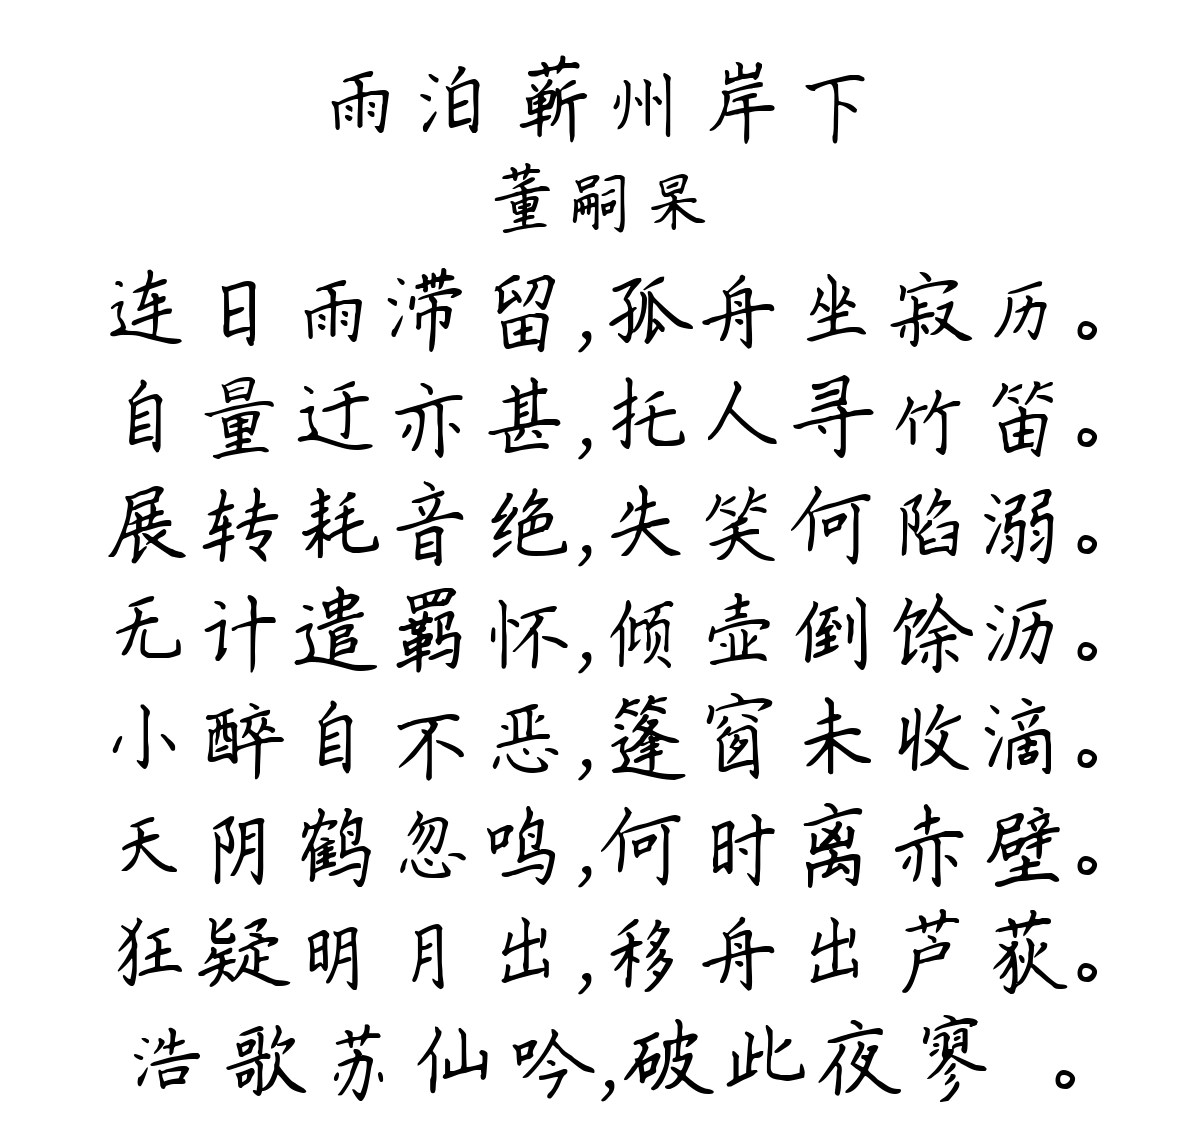 雨泊蕲州岸下
董嗣杲
连日雨滞留,孤舟坐寂历。
自量迂亦甚,托人寻竹笛。
展转耗音绝,失笑何陷溺。
无计遣羁怀,倾壶倒馀沥。
小醉自不恶,篷窗未收滴。
天阴鹤忽鸣,何时离赤壁。
狂疑明月出,移舟出芦荻。
浩歌苏仙吟,破此夜寥 。